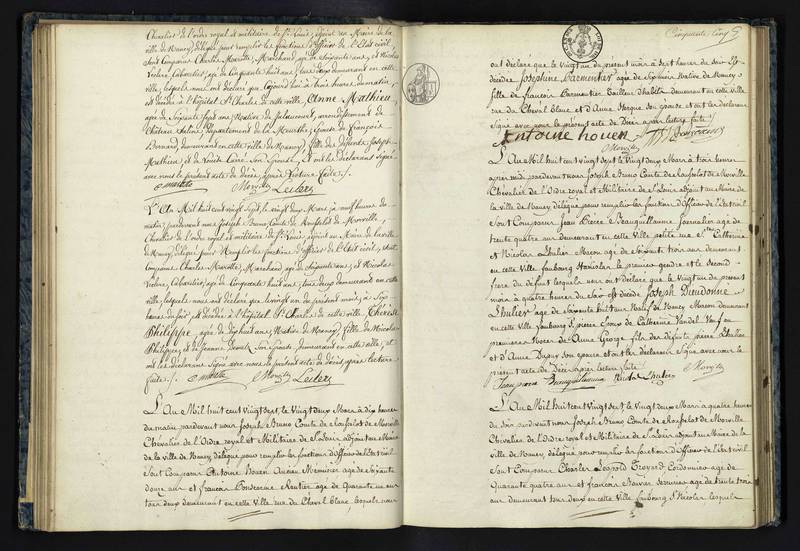 Chevalier de l'ordre royal et militaire de St Louis, adjoint au Maire de la
ville de Nancy, délégué pour remplir les fonctions d'officier de l'Etat civil,
sont comparus Charles Marotte, Marchand agé de soixante ans, et Nicolas
Leclerc, Cabaretier, agé de cinquante huit ans, tous deux demeurant en cette
ville, lesquels nous ont déclaré que aujourd'hui à trois heures du matin,
est décédée à l'hôpital St Charles de cette ville, Anne Mathieu,
agée de soixante sept ans, Native de Jalaucourt, arrondissement de
Château Salins, Département de la Meurthe, épouse de François
Bernard, demeurant en cette ville de Nancy, fille des défunts Joseph
Mathieu, et de son épouse, et ont les déclarans signé
avec nous le présent acte de décès, après lecture faite.
Leclerc
L'An Mil huit cent vingt sept, le vingt deux Mars à neuf heures du
matin, pardevant nous Joseph Bruno Comte de Morville,
Chevalier de l'ordre royal et militaire de St Louis, adjoint au Maire de la ville
de Nancy, délégué pour remplir les fonctions d'officier de l'Etat civil, sont
comparus Charles Marotte, Marchand agé de soixante ans, et Nicolas
Leclerc, Cabaretier, agé de cinquante huit ans, tous deux demeurant en cette
ville, lesquels nous ont déclaré que le vingt un du présent mois, à six
heures du soir, est décédée à l'hôpital St Charles de cette ville, Thérèse
Philippe, agée de dix huit ans, Native de Nancy, fille de Nicolas
Philippe, et de Jeanne son épouse, demeurant en cette ville, et
ont les déclarans signé avec nous le présent acte de décès, après lecture
faite.
Leclerc
L'An Mil huit cent vingt sept, le vingt deux Mars à dix heures
du matin pardevant nous Joseph Bruno Comte de Morville
Chevalier de l'Ordre royal et Militaire de St Louis adjoint au Maire
de la ville de Nancy délégué pour remplir les fonctions d'officier de l'Etat civil
Sont comparus Antoine Houen Ancien Menuisier agé de soixante
douze ans et françois Rentier agé de Quarante un ans
tous deux demeurant en cette Ville rue du Cheval blanc lesquels nous
Cinquante Cinq
ont déclaré que le Vingt un du présent mois à sept heures du soir Est
décédée Josephine Parmentier agée de six mois Native de Nancy
fille de françois Parmentier Tailleur d'habits demeurant en cette ville
rue du Cheval blanc et d'Anne son épouse et ont les déclarans
Signé avec nous le présent acte de Décès après lecture faite
Antoine houen
L'An Mil huit cent vingt sept le Vingt deux Mars à trois heures
après midi pardevant nous Joseph Bruno Comte de Morville
Chevalier de l'Ordre royal et Militaire de St Louis adjoint au Maire
de la ville de Nancy délégué pour remplir les fonctions d'officier de l'Etat civil
Sont Comparus Jean Pierre journalier agé de
trente quatre ans demeurant en cette Ville petite rue Ste Catherine
Et Nicolas Lhulier Macon agé de soixante trois ans demeurant
en cette Ville faubourg Stanislas le premier gendre et le second
frere du défunt lesquels nous ont déclaré que le Vingt du présent
mois à quatre heures du soir est décédé Joseph Dieudonné
Lhulier agé de soixante huit ans Natif de Nancy Macon demeurant
en cette Ville faubourg St pierre époux de Catherine Vandel Veuf en
premieres noces de Anne George fils des défunts pierre Lhulier
et d'Anne Dupuy son épouse et ont les déclarans signé avec nous le
présent acte de Décès après lecture faite
Jean pierre Nicolas Lhulier
L'An Mil huit cent vingt sept le Vingt deux Mars à quatre heures
du soir pardevant nous Joseph Bruno Comte de Morville
Chevalier de l'Ordre royal et Militaire de St Louis adjoint au Maire de la
ville de Nancy délégué pour remplir les fonctions d'officier de l'Etat civil
Sont Comparus Charles Leopold Troyard Cordonnier agé de
Quarante quatre ans et françois Serrurier agé de trente trois
ans demeurant tous deux en cette Ville faubourg St Nicolas lesquels